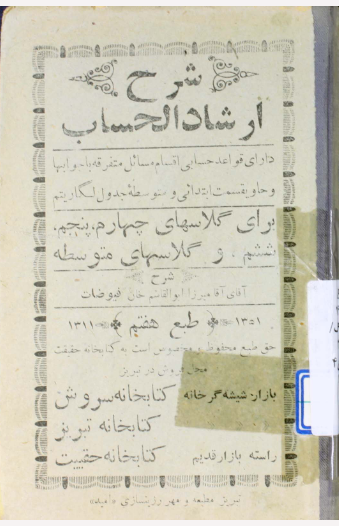 شرح
ارشاد الحساب
دارای قواعد حسابی اقسام مسائل متفرقه با جوابها
و حاوی قسمت ابتدائی و متوسطه جدول لگاریتم
برای کلاسهای چهارم، پنجم،
ششم، و کلاسهای متوسطه
شرح
آقای آقا میرزا ابوالقاسم خان فیوضات
۱۳۵۱ طبع هفتم ۱۳۱۱
حق طبع محفوظ و مخصوص است به کتابخانه حقیقت
محل فروش در تبریز
بازار شیشه گر خانه کتابخانه سروش
کتابخانه تبریز
راسته بازار قدیم کتابخانه حقیقت
تبریز مطبعه و مهر